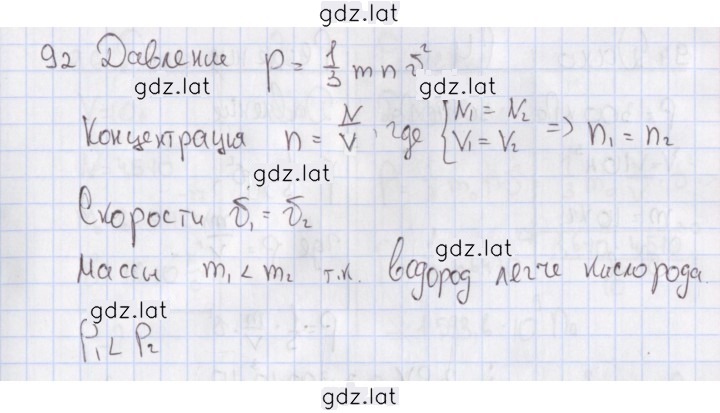 gdz.lat
92 Давление p = 1/3 m n v̄²
gdz.lat gdz.lat
Концентрация n = N/V, где { N₁ = N₂ V₁ = V₂ => n₁ = n₂
gdz.lat
Скорости v̄₁ = v̄₂
gdz.lat
Массы m₁ < m₂ т.к. водород легче кислорода.
gdz.lat
p₁ < p₂
gdz.lat